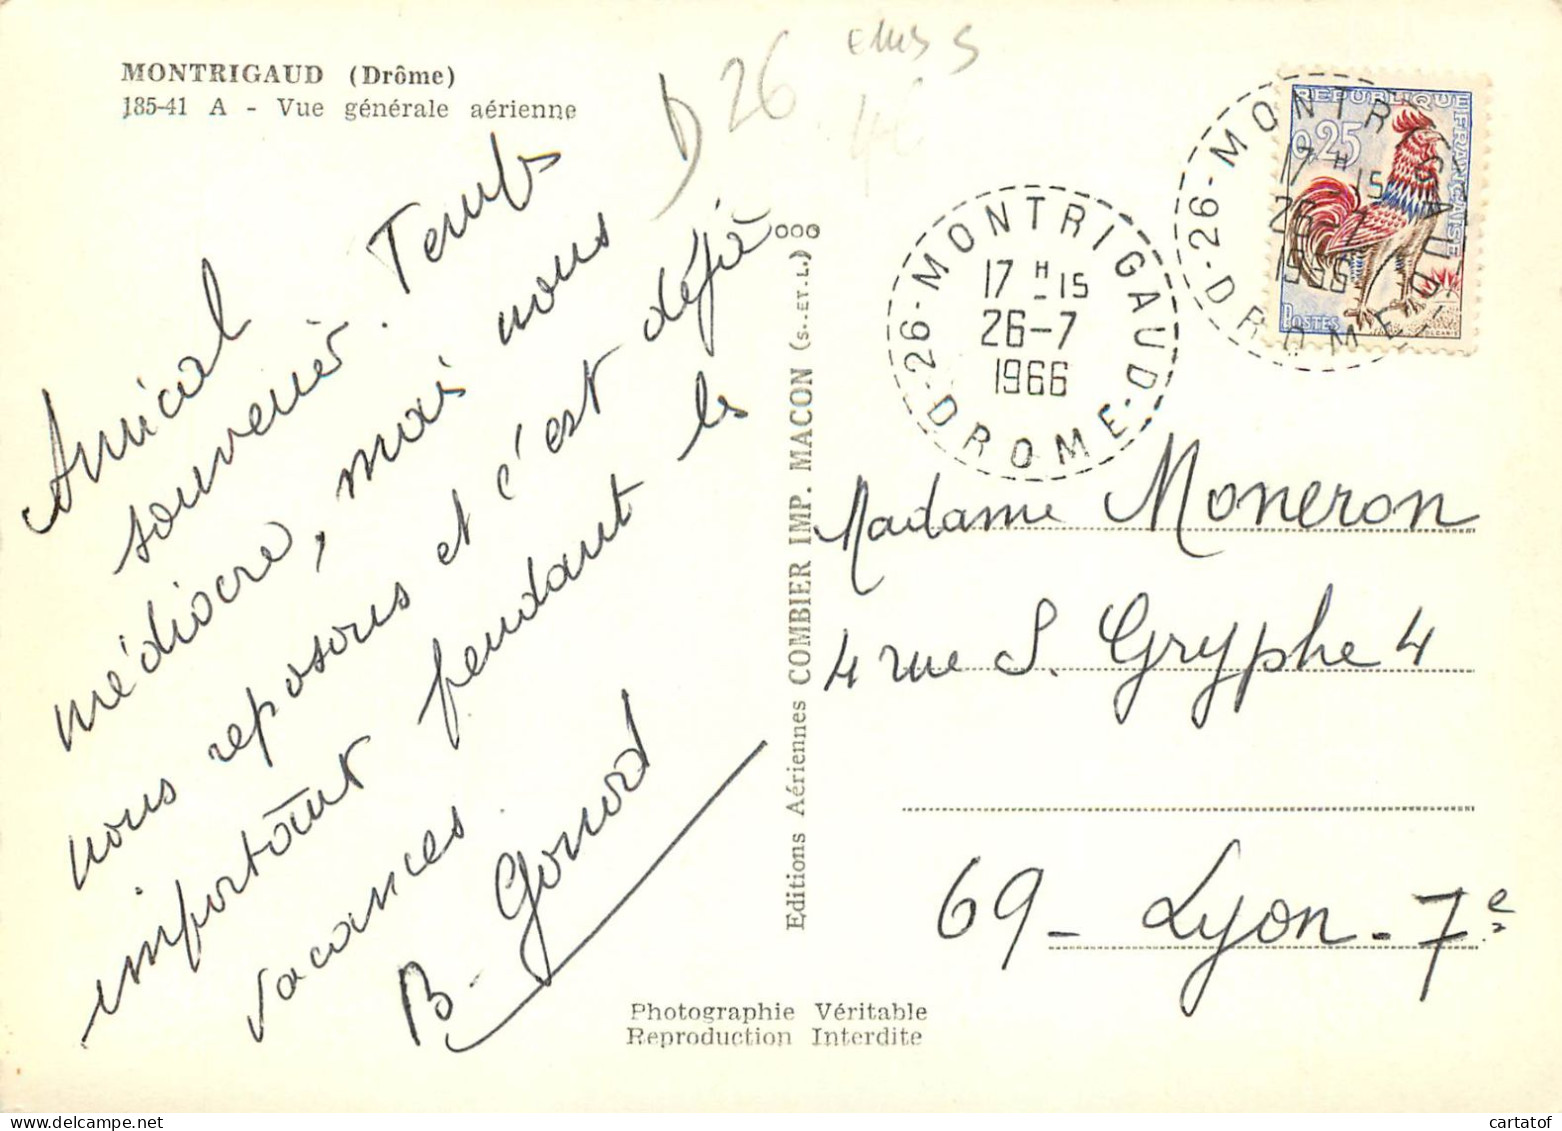 MONTRIGAUD (Drôme)
185-41 A - Vue générale aérienne
D 26
Amical
souvenir. Temps
médiocre, mais nous
nous reposons et c'est déjà
important pendant les
vacances.
B. Gonod
Editions Aériennes COMBIER IMP. MACON (S. ET. L.)
26 - MONTRIGAUD - DROME
17 H 15
26-7
1966
26 - MONTRIGAUD - DROME
17 H 15
26-7
1966
REPUBLIQUE FRANÇAISE
0,25
POSTES
DECARIS
Madame Moneron
4 rue S. Gryphe 4
69 - Lyon - 7e
Photographie Véritable
Reproduction Interdite
cartatof